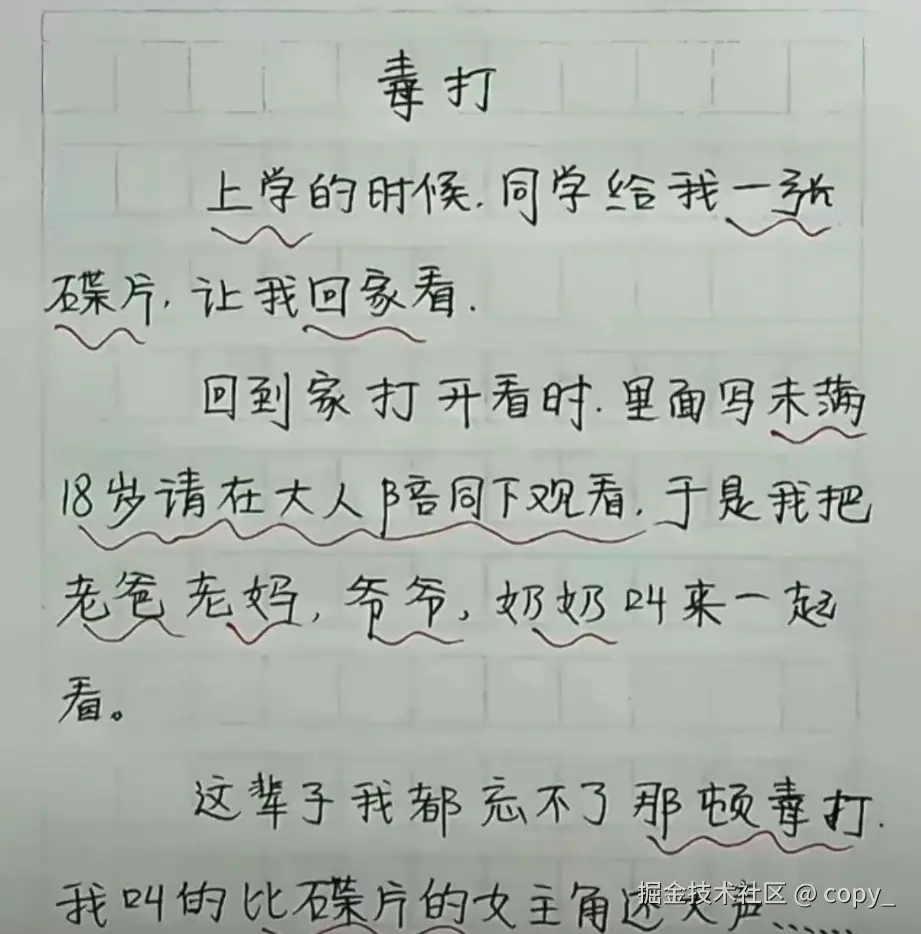 毒打
上学的时候.同学给我一张
碟片,让我回家看.
回到家打开看时.里面写未满
18岁请在大人陪同下观看,于是我把
老爸老妈,爷爷,奶奶叫来一起
看。
这辈子我都忘不了那顿毒打.
我叫的比碟片的女主角还大声……
掘金技术社区 @ copy_